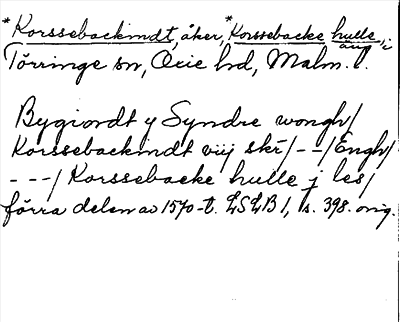 *Korssebackindt, åker, *Korssebacke hulle, äng, i
Törringe sn, Oxie hd, Malm. l.
Bygiordt y Syndre wongh/
Korssebackindt viij skr/--/Engh/-
---/Korssebacke hulle j les/
förra delen av 1570-t. LSLB 1, s. 398. orig.